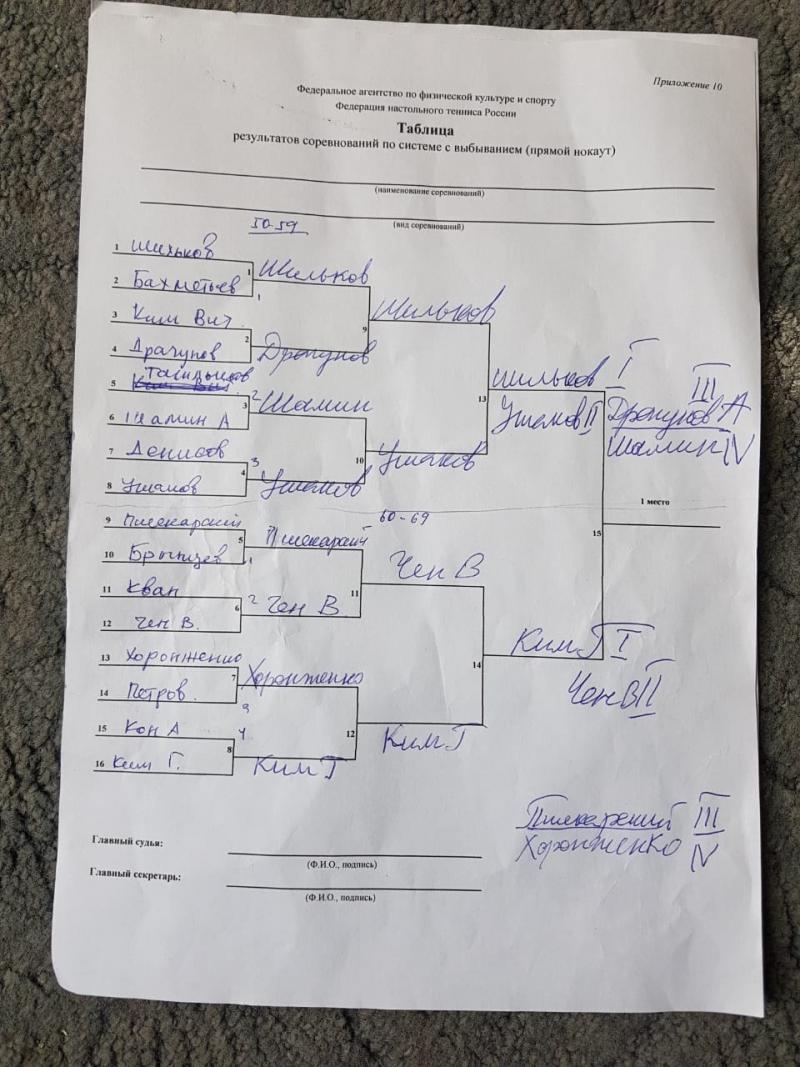 Приложение 10
Федеральное агентство по физической культуре и спорту
Федерация настольного тенниса России
Таблица
результатов соревнований по системе с выбыванием (прямой нокаут)
(наименование соревнований)
(вид соревнований)
50-59
1 Шильков
2 Бахметьев
1 Шильков
1
3 Ким Вит.
4 Драчунов
2 Драчунов
9 Шильков
5
6 Шамин А
3 2 Шамин
7 Денисов
8 Ушаков
4 3 Ушаков
10 Ушаков
13 Шильков I
Ушаков II
III
Драчунов А
Шамин IV
1 место
15
60-69
9 Пшекарский
10 Брынцев
5 Пшекарский
1
11 Кван
12 Чен В.
6 2 Чен В.
11 Чен В
13 Хоронженко
14 Петров
7 Хоронженко
3
15 Кон А
4
16 Ким Г.
8 Ким Г
12 Ким Г
14 Ким Г I
Чен В II
Пшекарский III
Хоронженко IV
Главный судья:
(Ф.И.О., подпись)
Главный секретарь:
(Ф.И.О., подпись)